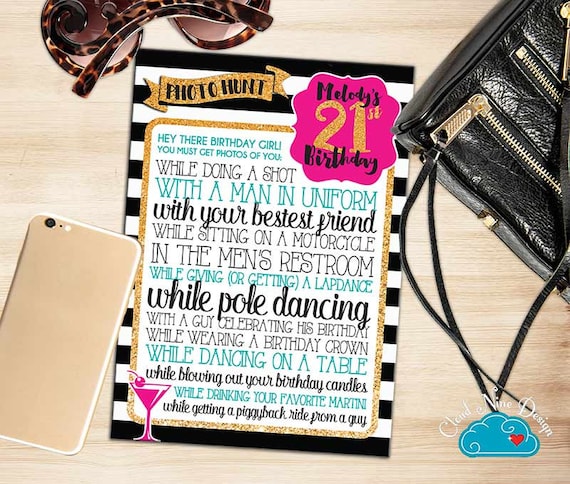 PHOTO HUNT
Melody's
21st
Birthday
HEY THERE BIRTHDAY GIRL!
YOU MUST GET PHOTOS OF YOU:
WHILE DOING A SHOT
WITH A MAN IN UNIFORM
with your bestest friend
WHILE SITTING ON A MOTORCYCLE
IN THE MEN'S RESTROOM
WHILE GIVING (OR GETTING) A LAPDANCE
while pole dancing
WITH A GUY CELEBRATING HIS BIRTHDAY
WHILE WEARING A BIRTHDAY CROWN
WHILE DANCING ON A TABLE
while blowing out your birthday candles
WHILE DRINKING YOUR FAVORITE MARTINI
while getting a piggyback ride from a guy
Cloud Nine Design